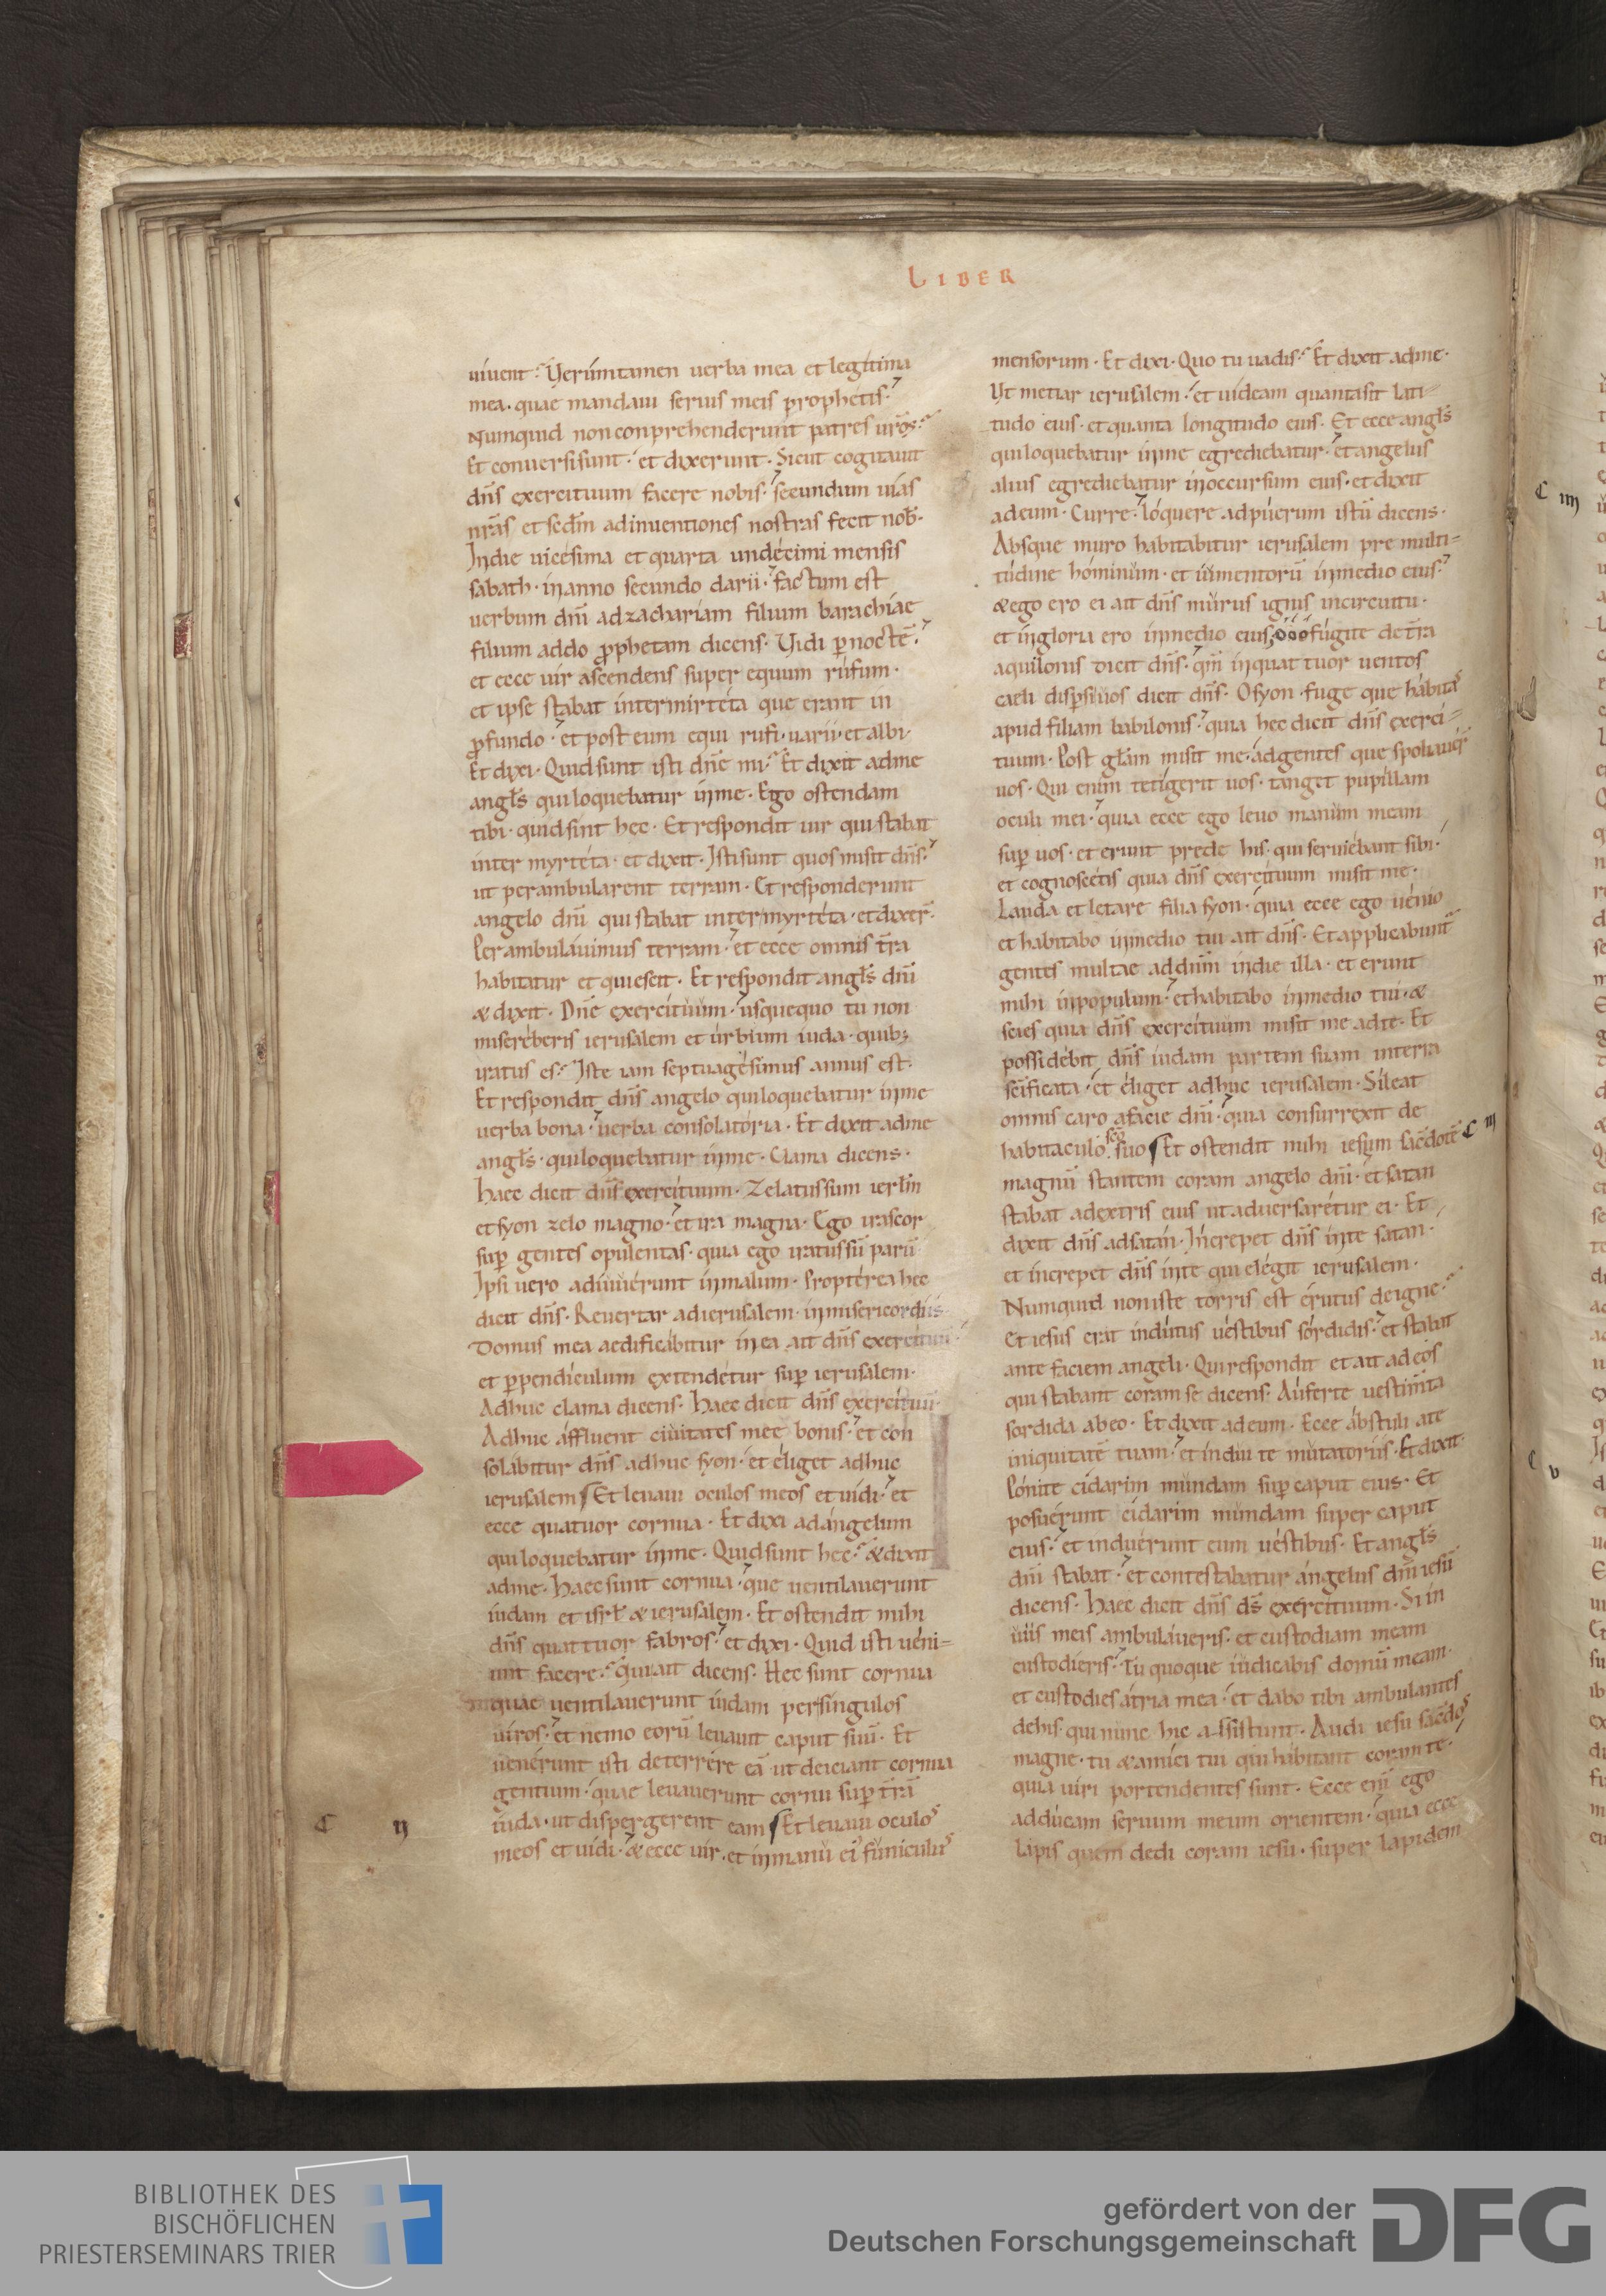 LIBER
uiuent? Verúmtamen uerba mea et legitima
mea. quae mandaui seruis meis prophetis?
Numquid non conprehenderunt patres ur̄os?
Et conuersi sunt. et dixerunt. Sicut cogitauit
dn̄s exercituum facere nobis. secundum uias
nr̄as et scd̄m adinuentiones nostras fecit nob̄.
In die uicesima et quarta undecimi mensis
sabath. in anno secundo darii. factum est
uerbum dn̄i ad zachariam filium barachiae
filium addo ꝓphetam dicens. Vidi ꝑ noctē.
et ecce uir ascendens super equum rufum.
et ipse stabat inter mirteta que erant in
ꝓfundo. et post eum equi rufi. uarii. et albi.
Et dixi. Quid sunt isti dn̄e mi? Et dixit ad me
angl̄s qui loquebatur in me. Ego ostendam
tibi. quid sint hec. Et respondit uir qui stabat
inter myrteta. et dixit. Isti sunt quos misit dn̄s.
ut perambularent terram. Et responderunt
angelo dn̄i qui stabat inter myrteta. et dixer̄.
Perambulauimus terram. et ecce omnis tr̄a
habitatur et quiescit. Et respondit angl̄s dn̄i
& dixit. Dn̄e exercituum. usquequo tu non
misereberis ierusalem et urbium iuda. quib;
iratus es? Iste iam septuagesimus annus est.
Et respondit dn̄s angelo qui loquebatur in me
uerba bona. uerba consolatoria. Et dixit ad me
angl̄s. qui loquebatur in me. Clama dicens.
Haec dicit dn̄s exercituum. Zelatus sum ierl̄m
et syon zelo magno. et ira magna. Ego irascor
suꝑ gentes opulentas. quia ego iratus sū parū.
Ipsi uero adiuuerunt in malum. Propterea hec
dicit dn̄s. Reuertar ad ierusalem. in misericordiis.
Domus mea aedificabitur in ea ait dn̄s exercituū.
et ꝑpendiculum extendetur suꝑ ierusalem.
Adhuc clama dicens. Haec dicit dn̄s exercituū.
Adhuc affluent ciuitates meę bonis. et con
solabitur dn̄s adhuc syon. et eliget adhuc
ierusalem Et leuaui oculos meos et uidi. et
ecce quatuor cornua. Et dixi ad angelum
qui loquebatur in me. Quid sunt hec? & dixit
ad me. Haec sunt cornua. que uentilauerunt
iudam et isrl̄ & ierusalem. Et ostendit mihi
dn̄s quattuor fabros. et dixi. Quid isti ueni=
unt facere? Qui ait dicens. Hec sunt cornua
quae uentilauerunt iudam per singulos
uiros. et nemo eorū leuauit caput suū. Et
uenerunt isti deterrere eā. ut deiciant cornua
gentium. quae leuauerunt cornu suꝑ tr̄ā
iuda. ut dispergerent eam Et leuaui oculos
C II
meos et uidi. & ecce uir. et in manū ei' funiculus
mensorum. Et dixi. Quo tu uadis? Et dixit ad me.
Vt metiar ierusalem. et uideam quanta sit lati=
tudo eius. et quanta longitudo eius. Et ecce angl̄s
qui loquebatur in me egrediebatur. et angelus
alius egrediebatur in occursum eius. et dixit
ad eum. Curre. loquere ad puerum istū dicens.
Absque muro habitabitur ierusalem pre multi=
tudine hominum. et iumentorū in medio eius.
& ego ero ei ait dn̄s murus ignis in circuitu.
et in gloria ero in medio eius. o o o fugite de tr̄a
aquilonis dicit dn̄s. qm̄ in quattuor uentos
caeli disꝑsi uos dicit dn̄s. O syon. fuge que habitas
apud filiam babilonis. quia hec dicit dn̄s exerci=
tuum. Post gl̄am misit me. ad gentes que spoliauer̄
uos. Qui enim tetigerit uos. tanget pupillam
oculi mei. quia ecce ego leuo manum meam
suꝑ uos. et erunt prede his. qui seruiebant sibi.
et cognoscetis quia dn̄s exercituum misit me.
Lauda et letare filia syon. quia ecce ego uenio
et habitabo in medio tui ait dn̄s. Et applicabunt̄
gentes multae ad dn̄m in die illa. et erunt
mihi in populum. et habitabo in medio tui. &
scies quia dn̄s exercituum misit me ad te. Et
possidebit dn̄s iudam partem suam in terra
sc̄ificata. et eliget adhuc ierusalem. Sileat
omnis caro a facie dn̄i. quia consurrexit de
habitaculo sc̄o suo Et ostendit mihi iesum sacdotē C III
magnū stantem coram angelo dn̄i. et satan
stabat a dextris eius ut aduersaretur ei. Et
dixit dn̄s ad satan. Increpet dn̄s in te satan.
et increpet dn̄s in te qui elegit ierusalem.
Numquid non iste torris est erutus de igne?
Et iesus erat indutus uestibus sordidis. et stabat
ante faciem angeli. Qui respondit et ait ad eos
qui stabant coram se dicens. Auferte uestim̄ta
sordida ab eo. Et dixit ad eum. Ecce abstuli a te
iniquitatē tuam. et indui te mutatoriis. Et dixit.
Ponite cidarim mundam suꝑ caput eius. Et
posuerunt cidarim mundam super caput
eius. et induerunt eum uestibus. Et angl̄s
dn̄i stabat. et contestabatur angelus dn̄i iesū
dicens. Haec dicit dn̄s ds̄ exercituum. Si in
uiis meis ambulaueris. et custodiam meam
custodieris. Tu quoque iudicabis domū meam.
et custodies atria mea. et dabo tibi ambulantes
de his. qui nunc hic assistunt. Audi iesu sacdos
magne. tu & amici tui qui habitant coram te.
quia uiri portendentes sunt. Ecce eni ego
adducam seruum meum orientem. quia ecce
lapis quem dedi coram iesu. super lapidem
C IIII
C V
BIBLIOTHEK DES
BISCHÖFLICHEN
PRIESTERSEMINARS TRIER
gefördert von der
Deutschen Forschungsgemeinschaft
DFG